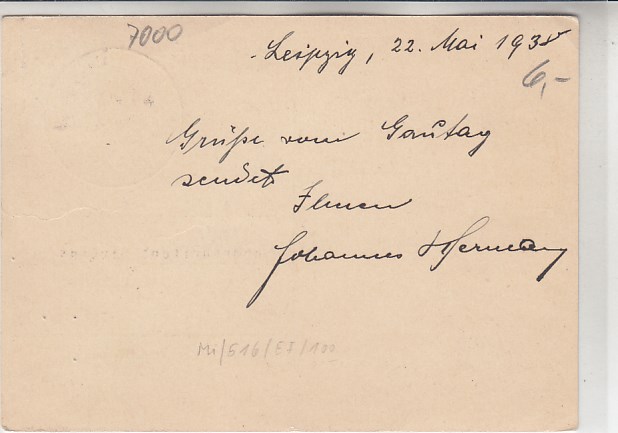 7000
Leipzig, 22. Mai 1938
6,-
Grüße vom Gautag
sendet
Ihnen
Johannes Hermann
Mi/516/EJ/100